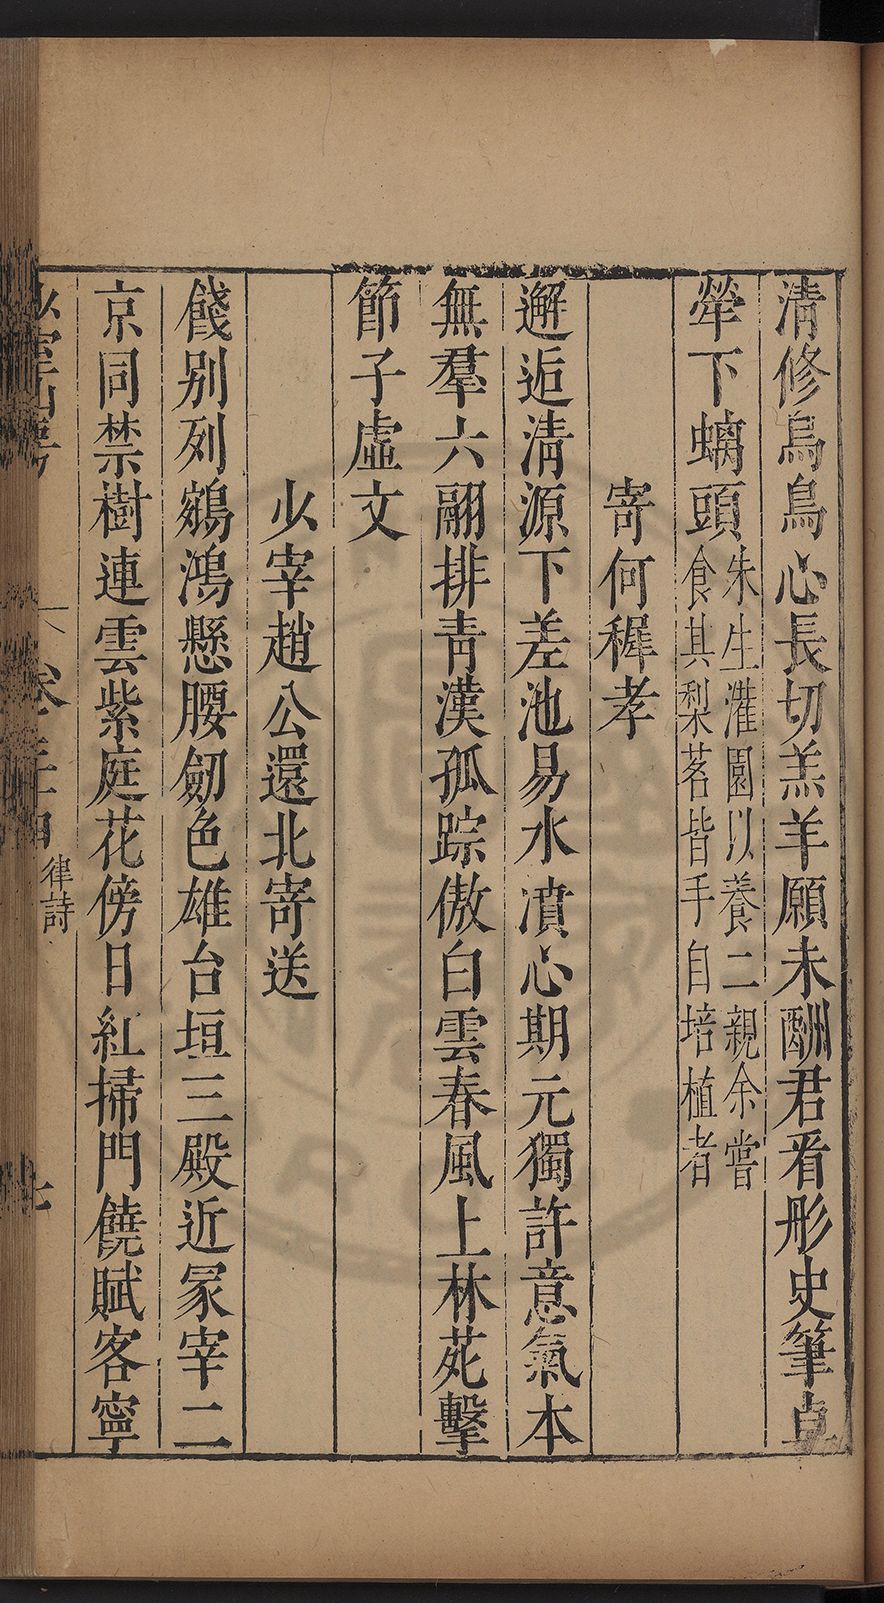 清修烏鳥心長切羔羊願未酬君看彤史筆卓
犖下螭頭朱生灌園以養二親余嘗
食其梨茗皆手自培植者
寄何稺孝
邂逅清源下差池易水濆心期元獨許意氣本
無羣六翮排青漢孤踪傲白雲春風上林苑擊
節子虛文
少宰趙公還北寄送
餞别列鵷鴻懸腰劒色雄台垣三殿近冢宰二
京同禁樹連雲紫庭花傍日紅掃門饒賦客寧
律詩